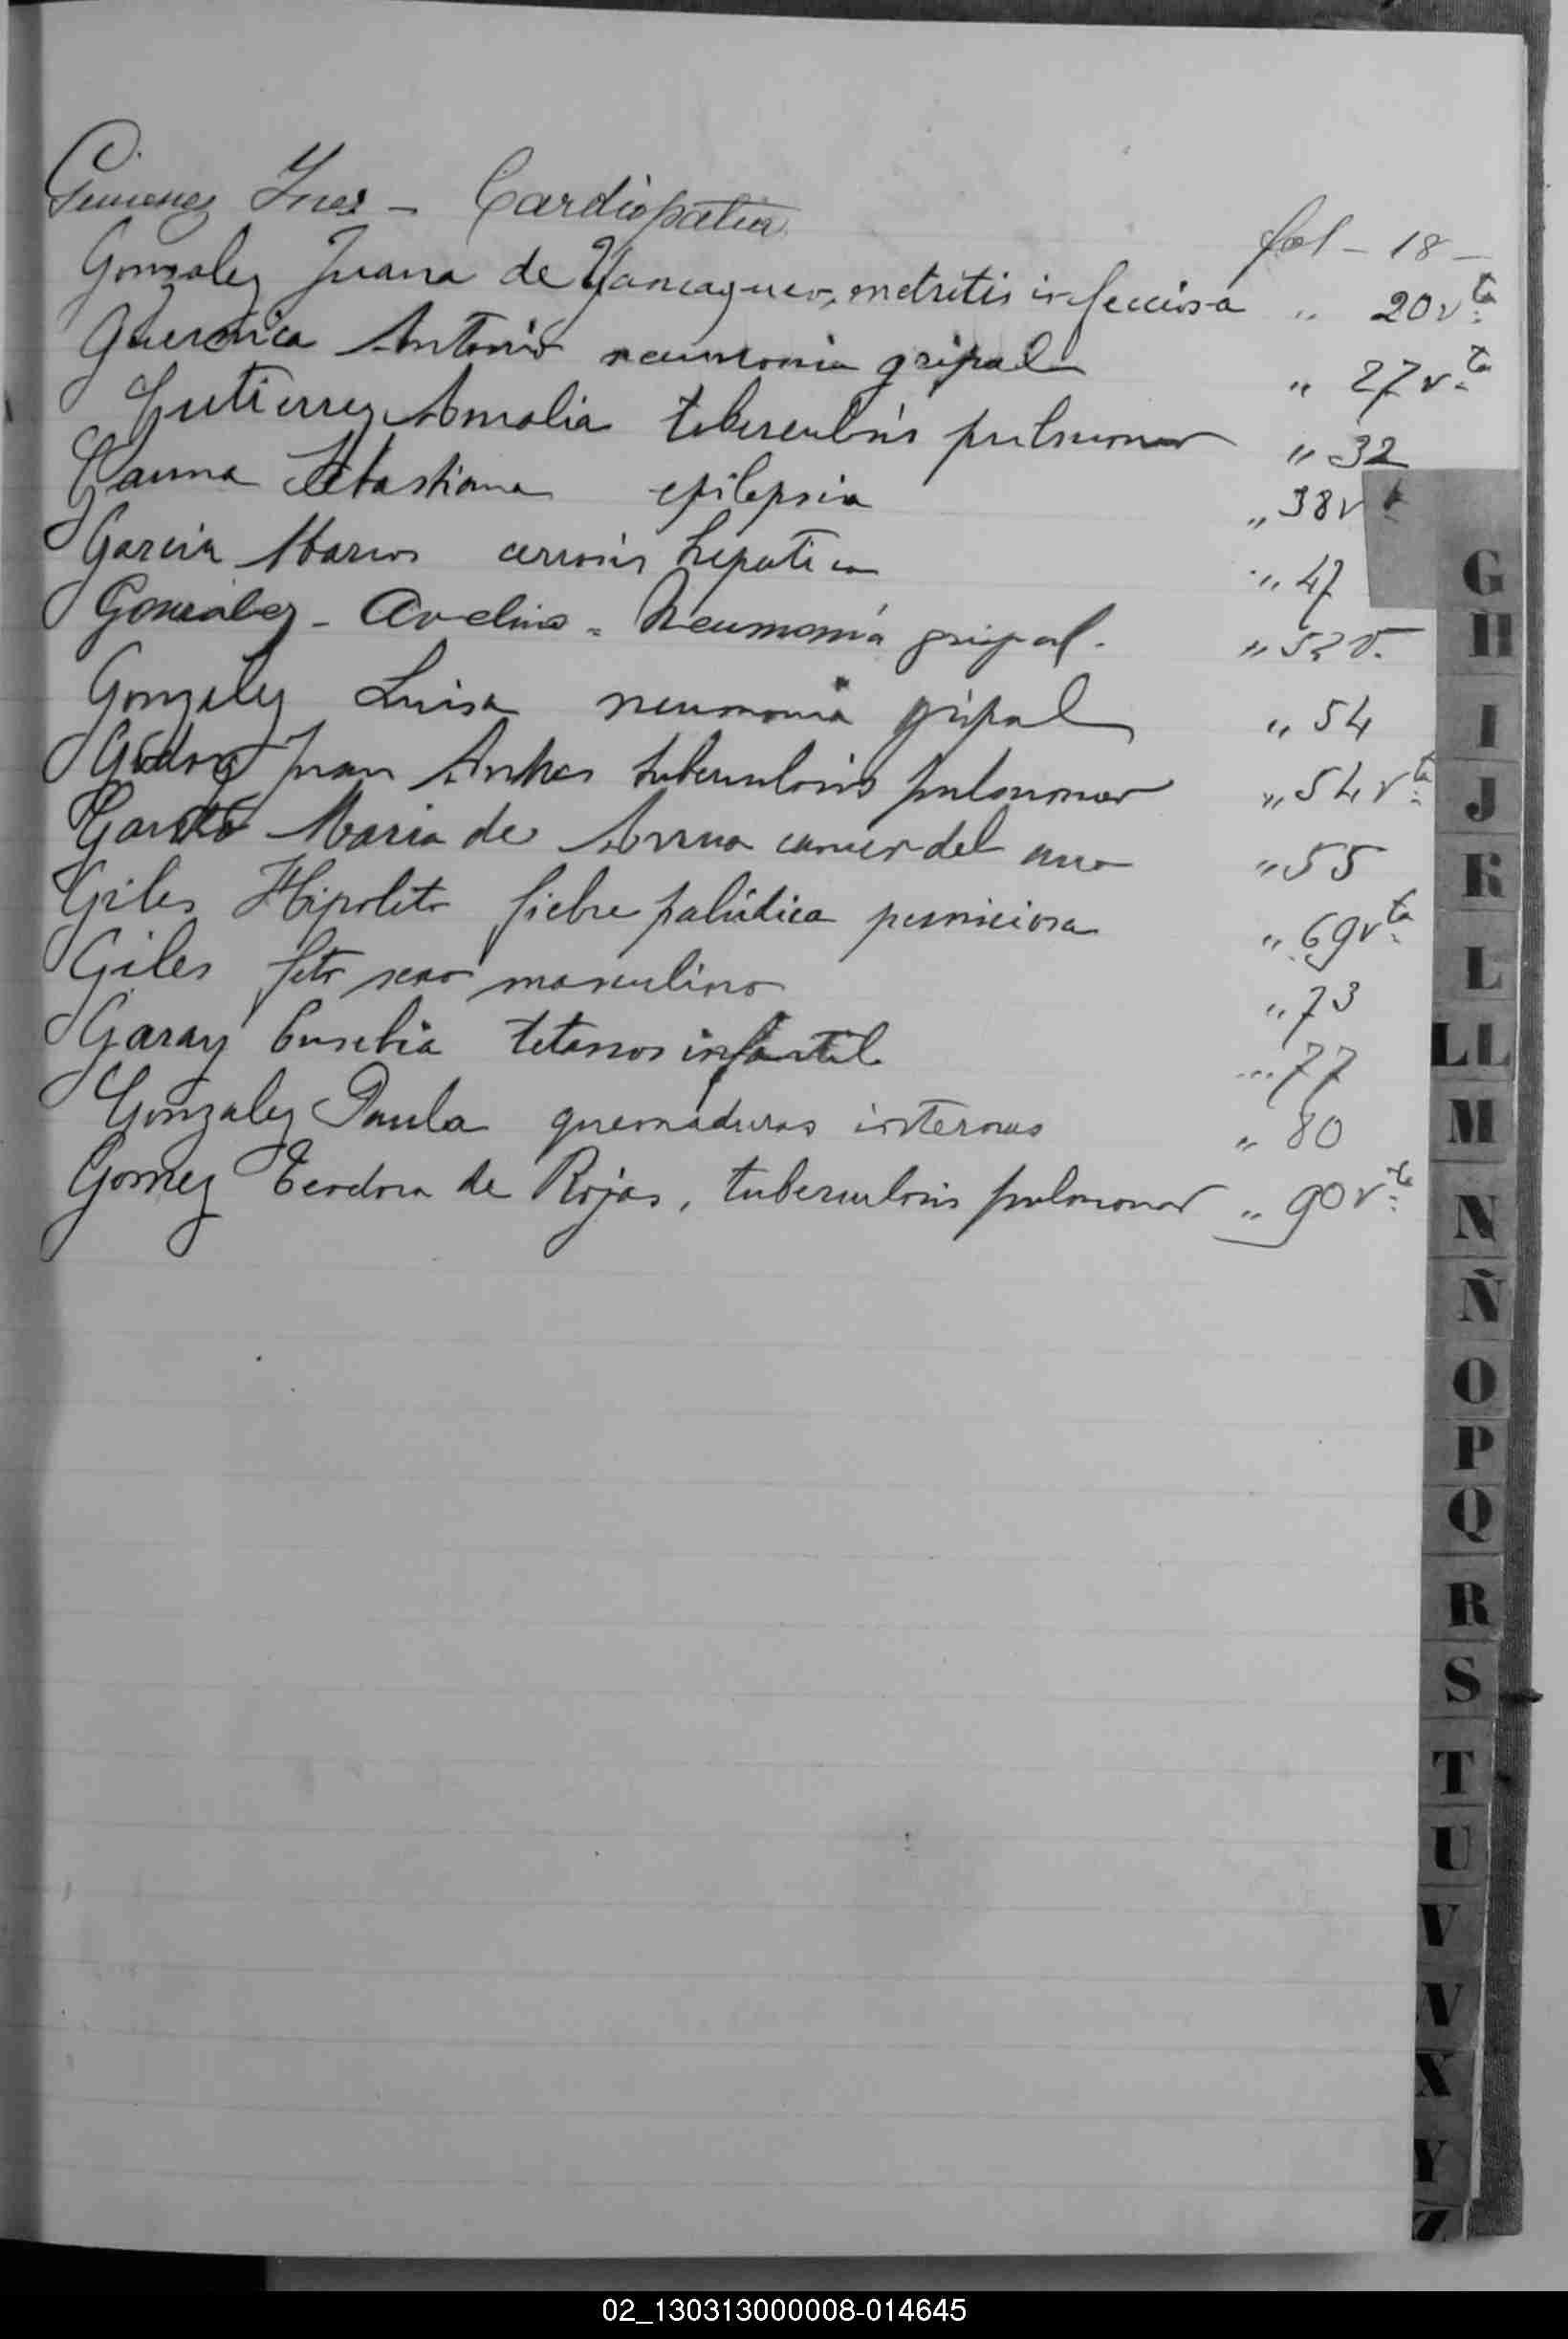 Gimenez Ines - Cardiopatia fol - 18 -
Gonzalez Juana de metritis infecciosa " 20 vta
Guernica Antonio neumonia gripal " 27 vta
Gutierrez Amalia tuberculosis pulmonar " 32
Gauna Sebastiana epilepsia " 38 v
Garcia Marcos cirrosis hepatica " 47
Gonzalez - Avelino - Neumonía gripal. " 52 v.
Gonzalez Luisa neumonia gripal " 54
Juan tuberculosis pulmonar " 54 vta
Maria de Arrua cancer del " 55
Giles Hipolito fiebre palúdica perniciosa " 69 vta
Giles feto sexo masculino " 73
Garay Eusebia tetanos infantil " 77
Gonzalez Paula quemaduras internas " 80
Gomez Teodora de Rojas, tuberculosis pulmonar " 90 vta
G
H
I
J
K
L
LL
M
N
Ñ
O
P
Q
R
S
T
U
V
X
Y
Z
02_130313000008-014645